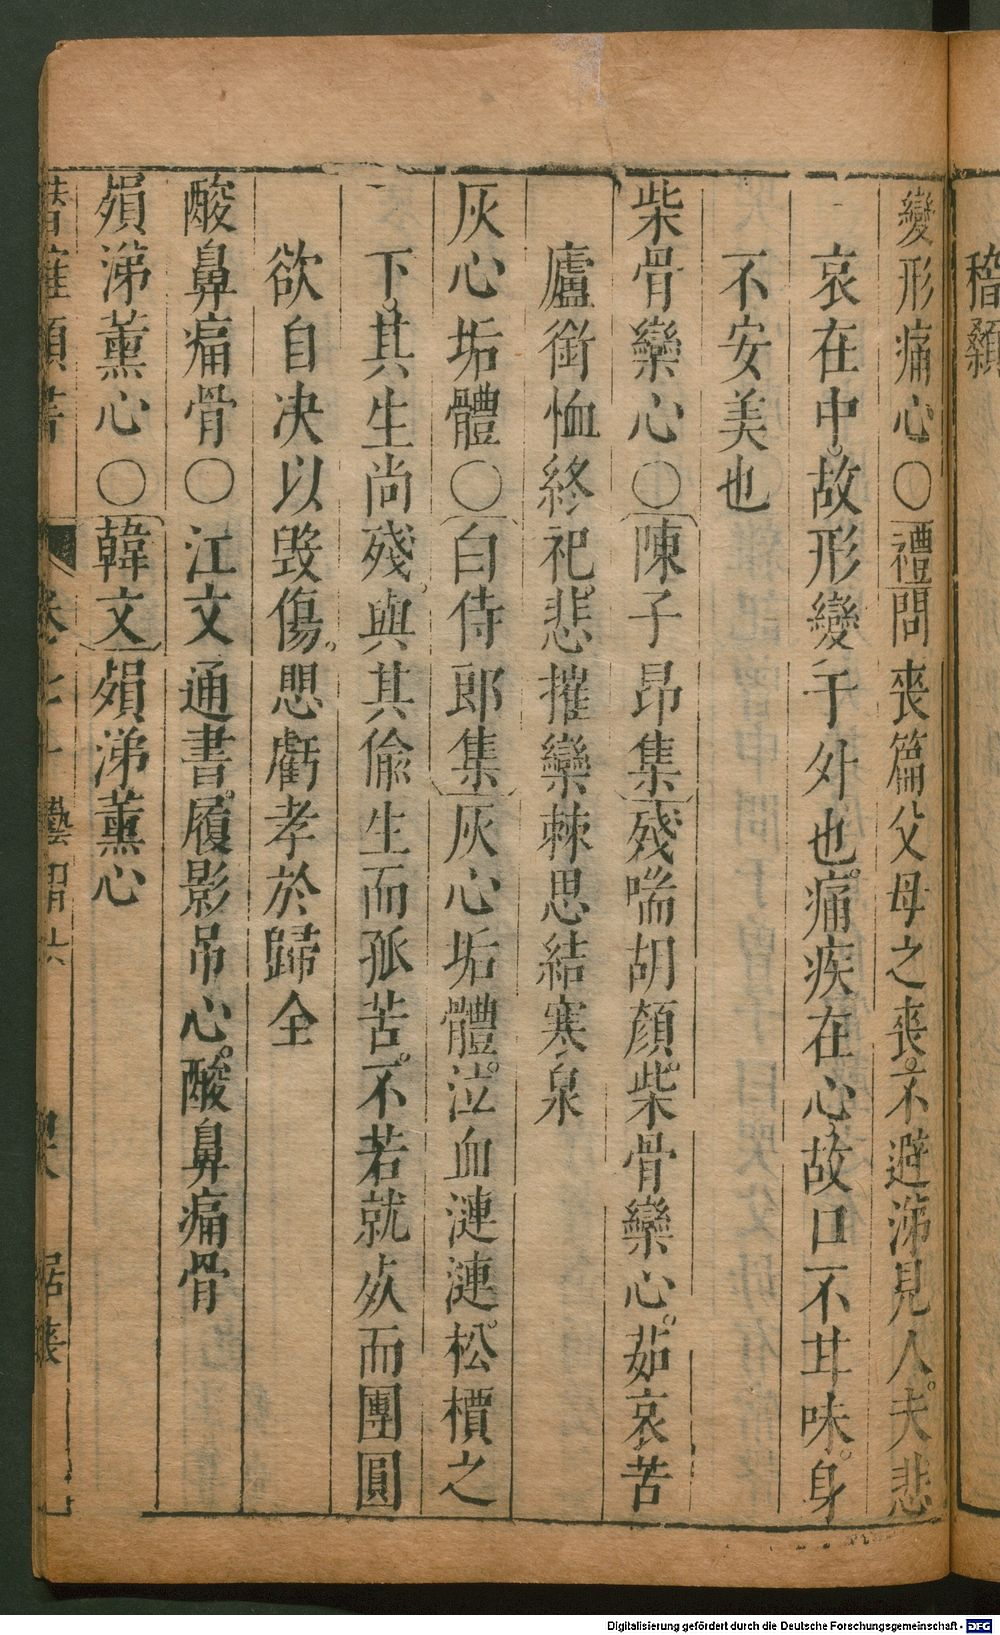 稽顙
變形痛心○禮問喪篇父母之喪。不避涕見人。夫悲
哀在中。故形變于外也。痛疾在心。故口不甘味。身
不安美也
柴骨欒心○陳子昂集殘喘胡顏。柴骨欒心。茹哀苦
廬銜恤終祀。悲摧欒棘思結寒泉
灰心垢體○白侍郎集灰心垢體。泣血漣漣。松檟之
下。其生尚殘。與其偷生而孤苦。不若就死而團圓
欲自决以毀傷。愳虧孝於歸全
酸鼻痛骨○江文通書。履影吊心。酸鼻痛骨
殞涕薰心○韓文殞涕薰心
卷七十
Digitalisierung gefördert durch die Deutsche Forschungsgemeinschaft - DFG